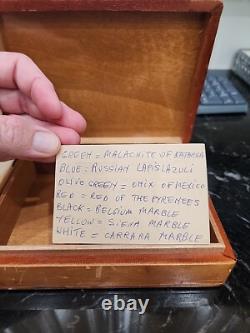 GREEN = MALACHITE OF KATANGA
BLUE = RUSSIAN LAPISLAZULI
OLIVE GREEN = ONIX OF MEXICO
RED = RED OF THE PYRENEES
BLACK = BELGIUM MARBLE
YELLOW = SIENA MARBLE
WHITE = CARRARA MARBLE